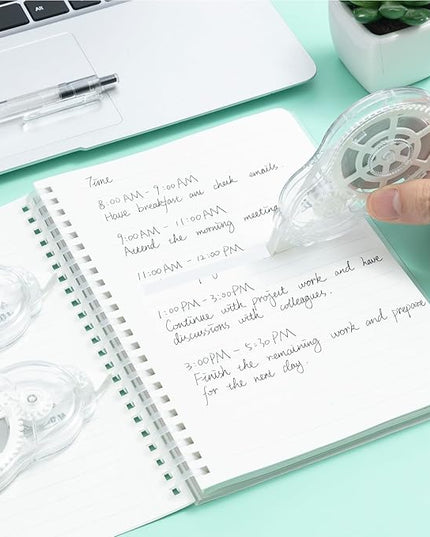 Time
8:00 AM - 9:00 AM
Have breakfast and check emails.
9:00 AM - 11:00 AM
Attend the morning meeting
11:00 AM - 12:00 PM
1:00 PM - 3:00 PM
Continue with project work and have
discussions with colleagues.
3:00 PM - 5:30 PM
Finish the remaining work and prepare
for the next day.